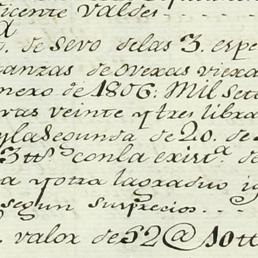 Vicente Valdes
@. de sevo de las 3. espe
tanzas de ovexas viexa
nexo de 1806: Mil Sete
vas veinte y tres libra
y la Segunda de 20. de
3 tt.s con la exist.a de
a y otra lagradu ig
segun su precios
valor de 52 @ 10 tt